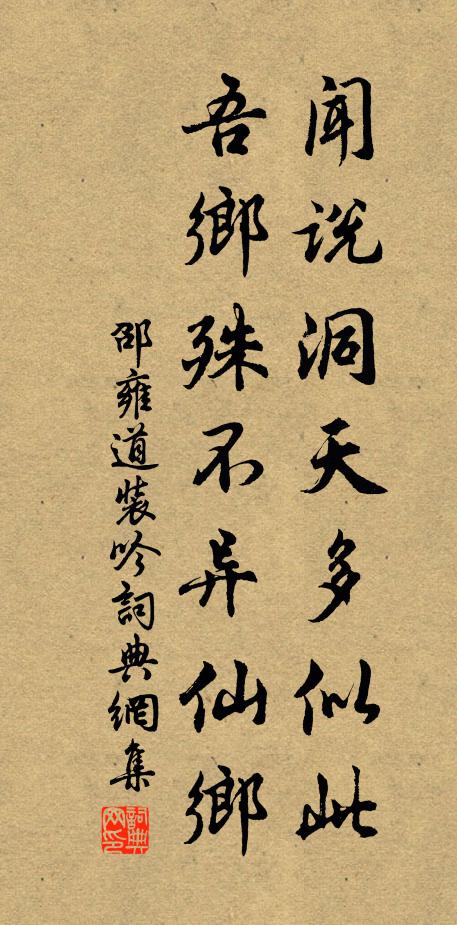 闻说洞天多似此
吾鄉殊不异仙鄉
邵雍道装吟詞典網集
詞典网印